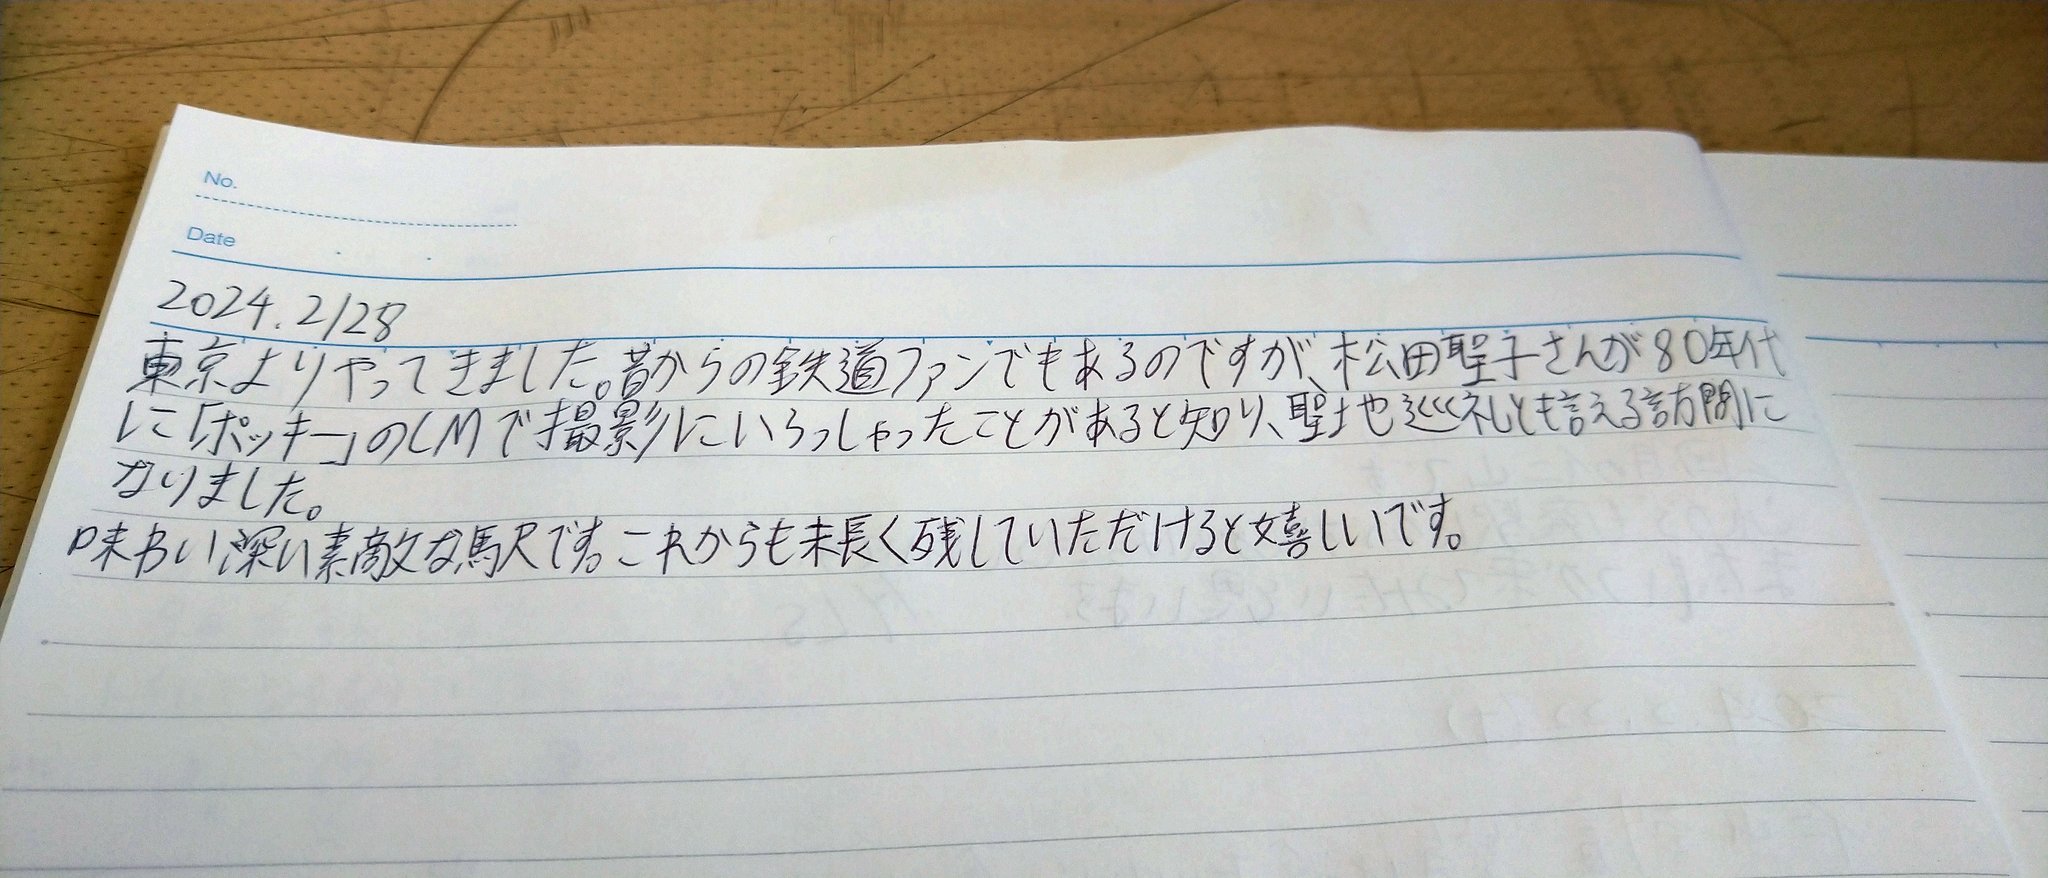 No.
Date
2024.2/28
東京よりやってきました。昔からの鉄道ファンでもあるのですが、松田聖子さんが80年代
に「ポッキー」のCMで撮影にいらっしゃったことがあると知り、聖地巡礼とも言える訪問に
なりました。
味わい深い素敵な駅です。これからも末長く残していただけると嬉しいです。